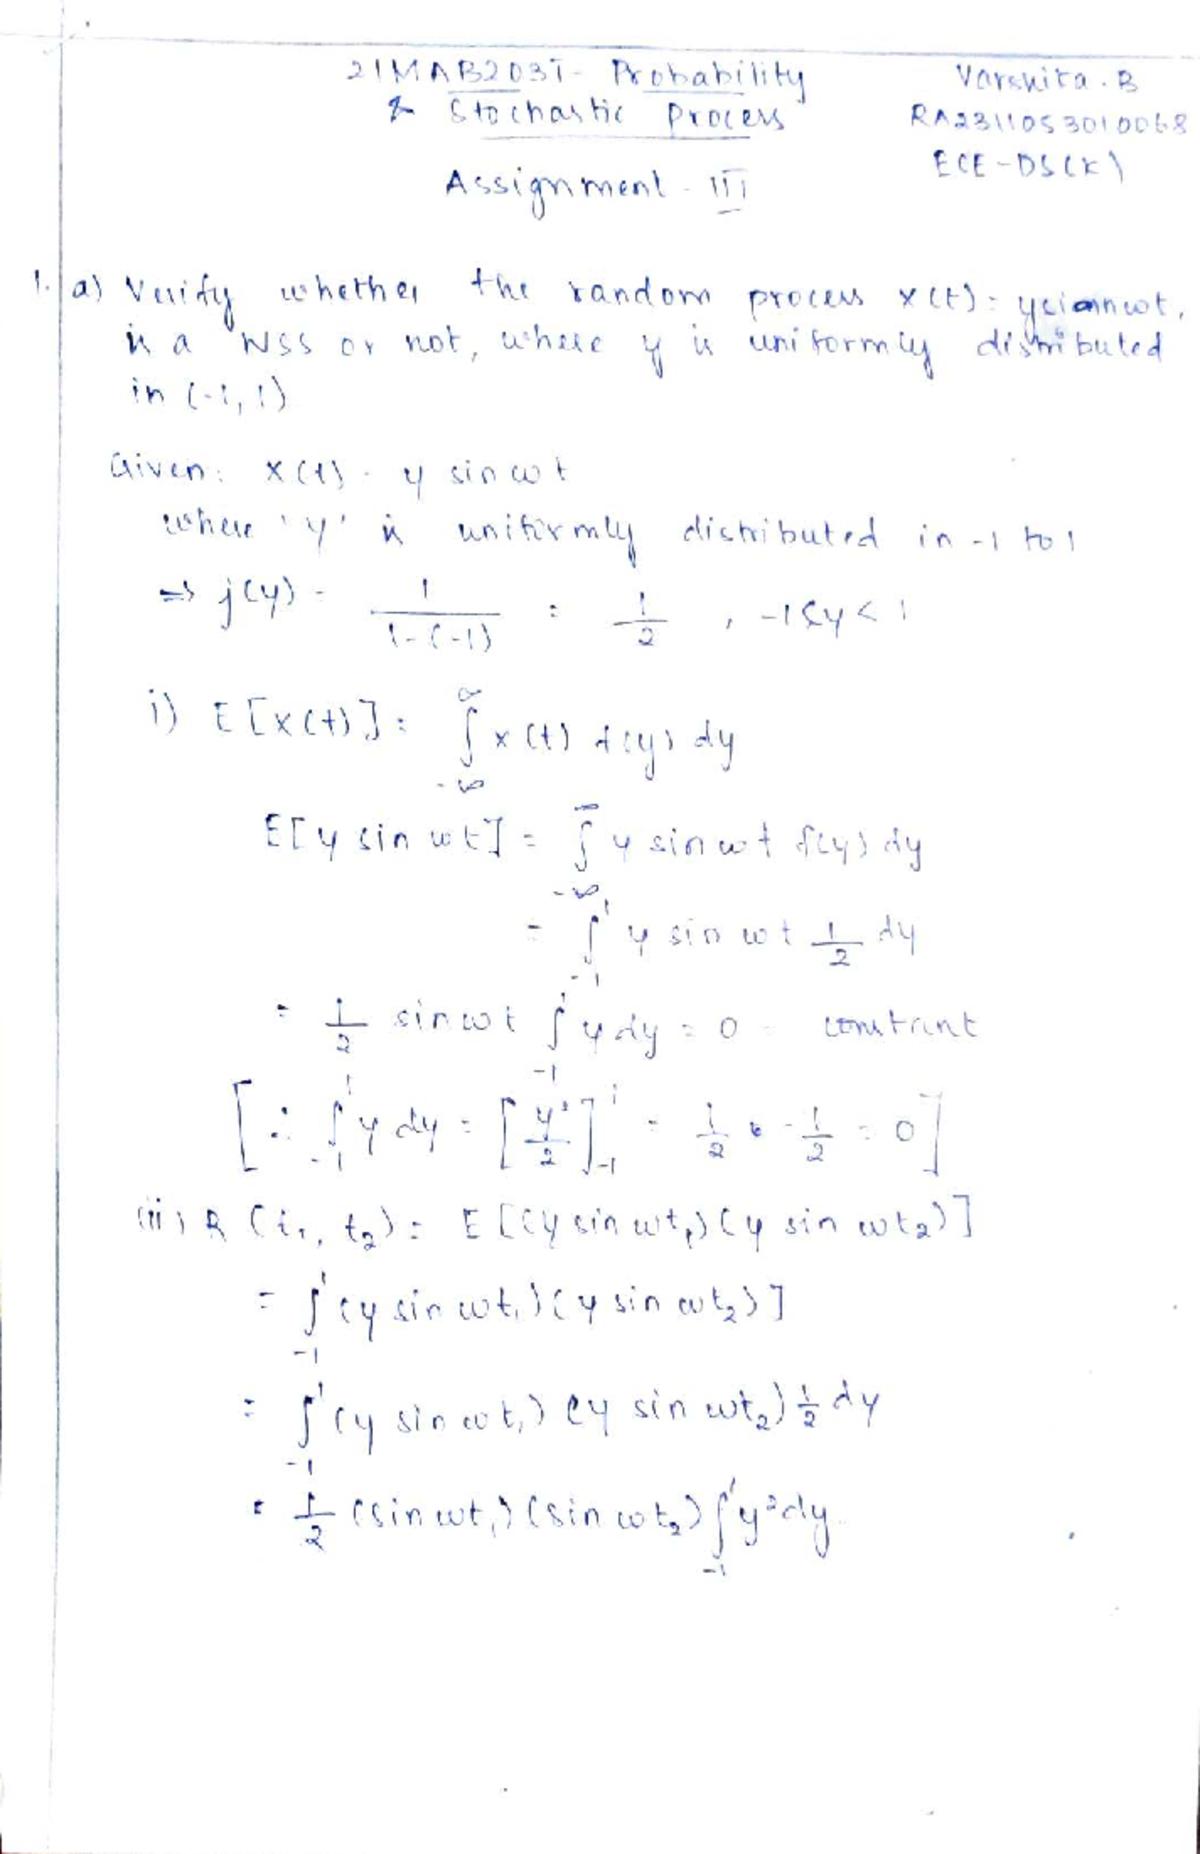 21MAB203T- Probability
& Stochastic Process
Varshita. B
RA2311053010068
ECE-DS(K)
Assignment - III
1. a) Verify whether the random process x(t) = y sin wt,
is a WSS or not, where y is uniformly distributed
in (-1, 1)
Given: x(t) - y sin ωt
where 'y' is uniformly distributed in -1 to 1
⇒ f(y) = 1/(1-(-1)) = 1/2 , -1≤y< 1
i) E[x(t)] = ∫_{-∞}^{∞} x(t) f(y) dy
E[y sin ωt] = ∫_{-∞}^{∞} y sin ωt f(y) dy
= ∫_{-1}^{1} y sin ωt 1/2 dy
= 1/2 sin ωt ∫_{-1}^{1} y dy = 0 = constant
[∵ ∫_{-1}^{1} y dy = [y²/2]_{-1}^{1} = 1/2 - 1/2 = 0]
(ii) R (t₁, t₂) = E[(y sin ωt₁)(y sin ωt₂)]
= ∫_{-1}^{1} (y sin ωt₁)(y sin ωt₂)]
= ∫_{-1}^{1} (y sin ωt₁) (y sin ωt₂) 1/2 dy
= 1/2 (sin ωt₁) (sin ωt₂) ∫_{-1}^{1} y² dy